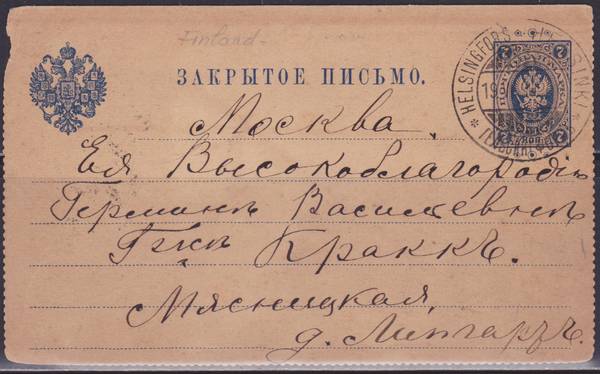 Finland
ЗАКРЫТОЕ ПИСЬМО.
HELSINGFORS
Москва.
Ея Высокоблагородiю
Германъ Васильевнъ
Гжъ Краккъ.
Мясницкая,
д. Липгардъ.